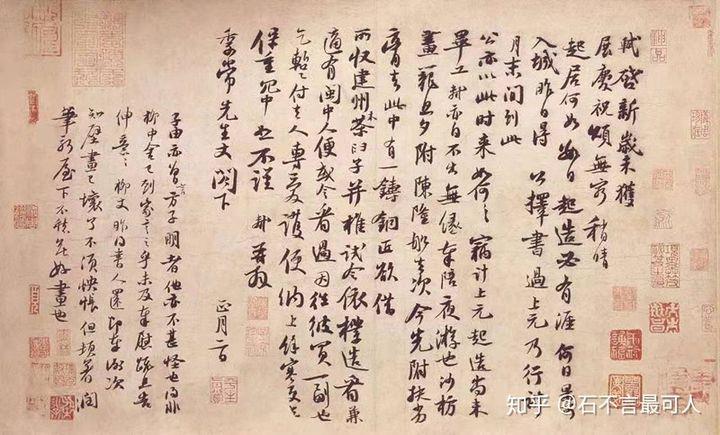 軾啓新歲未獲
展慶祝頌無窮稍晴
起居何如數日起造必有涯何日果可
入城昨日得公擇書過上元乃行計
月末間到此
公亦以此時來如何如何竊計上元起造尚未
畢工軾亦自不出無緣奉陪夜游也沙枋
畫籠旦夕附陳隆船去次今先附扶劣
膏去此中有一鑄銅匠欲借
所收建州木茶臼子并椎試令依樣造看兼
適有閩中人便或令看過因往彼買一副也
乞蹔付去人專愛護便納上餘寒更乞
保重冗中恕不謹軾再拜
季常先生丈閣下
正月二日
子由亦曾言方子明者他亦不甚怪也得非
柳中舍已到家言之乎未及奉慰疏且告
伸意伸意柳丈昨得書人還即奉謝次
知壁畫已壞了不須怏悵但頓著潤
筆新屋下不愁無好畫也
知乎 @石不言最可人